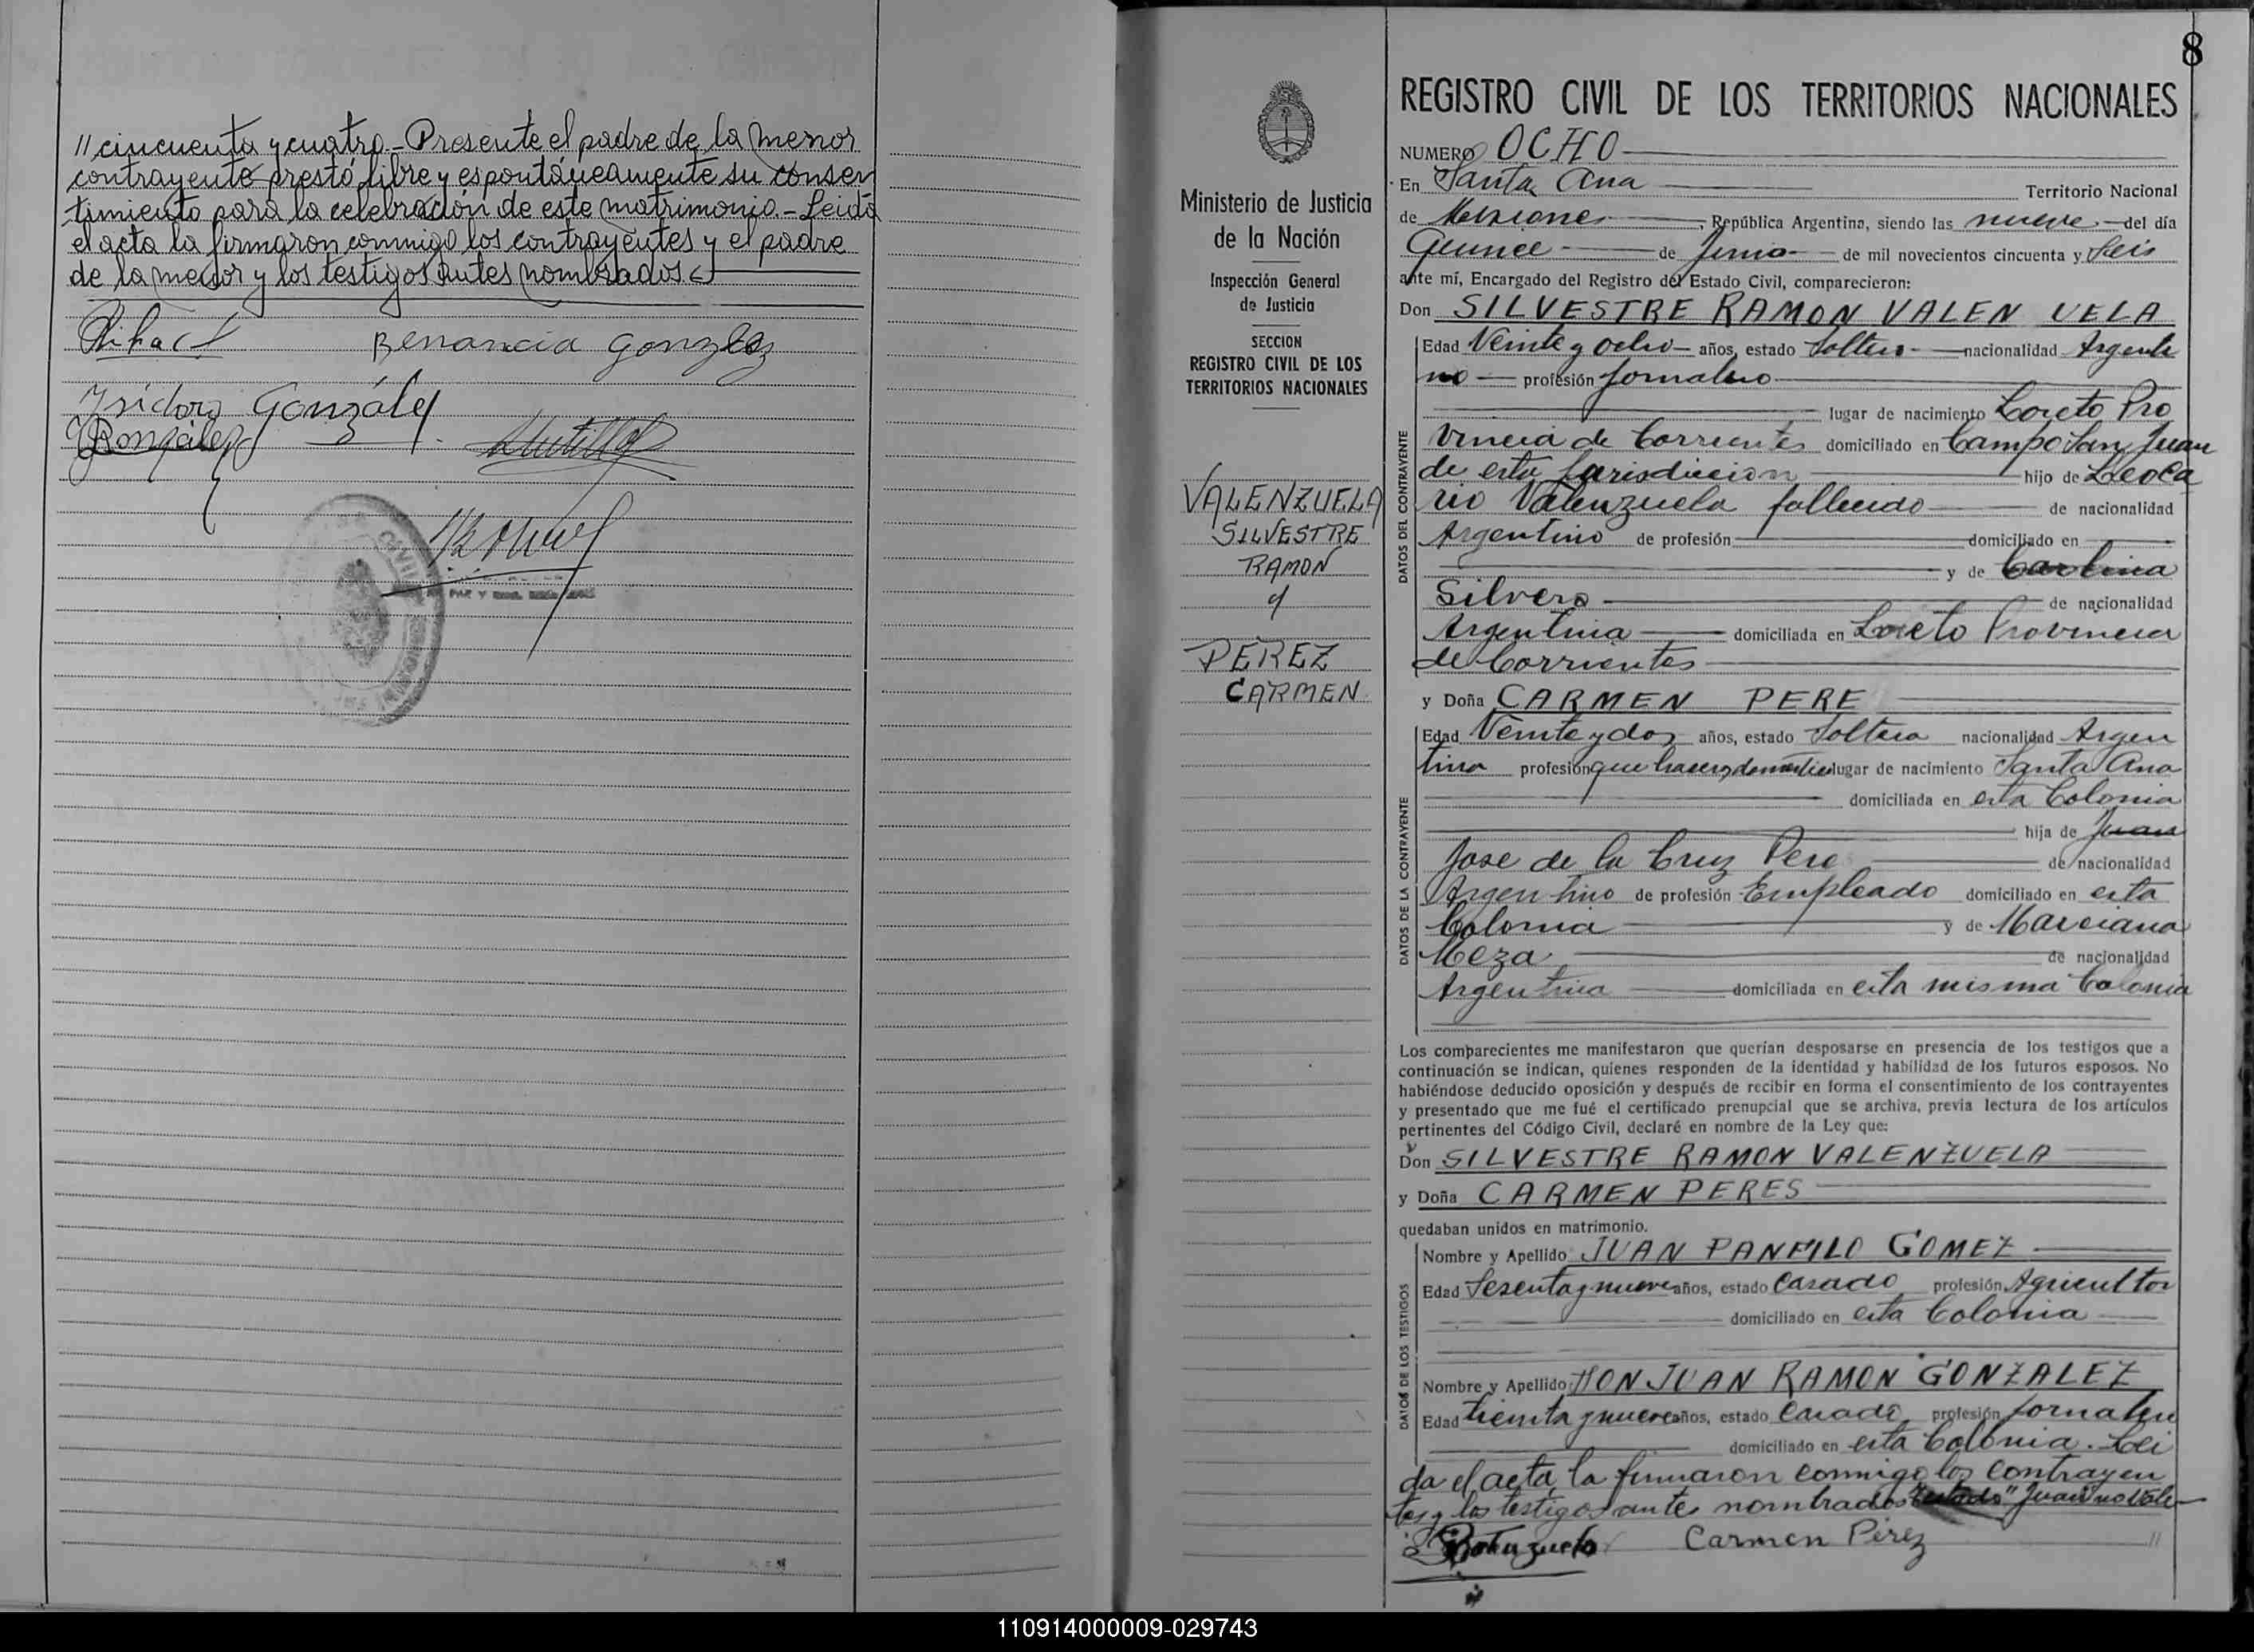 // cincuenta y cuatro.- Presente el padre de la menor
contrayente prestó libre y espontáneamente su consen
timiento para la celebración de este matrimonio.- Leida
el acta la firmaron conmigo los contrayentes y el padre
de la menor y los testigos antes nombrados.
Benancia Gonzlez
Isidoro González
Gonzalez
8
Ministerio de Justicia
de la Nación
Inspección General
de Justicia
SECCION
REGISTRO CIVIL DE LOS
TERRITORIOS NACIONALES
VALENZUELA
SILVESTRE
RAMON
y
PEREZ
CARMEN
REGISTRO CIVIL DE LOS TERRITORIOS NACIONALES
NUMERO OCHO
En Santa Ana Territorio Nacional
de Misiones, República Argentina, siendo las nueve del día
Quince de Junio de mil novecientos cincuenta y Seis
ante mí, Encargado del Registro del Estado Civil, comparecieron:
Don SILVESTRE RAMON VALEN UELA
DATOS DEL CONTRAYENTE
Edad Veinte y ocho años, estado Soltero nacionalidad Argenti
no profesión Jornalero
lugar de nacimiento Loreto Pro
vincia de Corrientes domiciliado en Campo San Juan
de esta Jurisdiccion hijo de Leoca
rio Valenzuela fallecido de nacionalidad
Argentino de profesión domiciliado en
y de Carolina
Silvero de nacionalidad
Argentina domiciliada en Loreto Provincia
de Corrientes
y Doña CARMEN PERE
DATOS DE LA CONTRAYENTE
Edad Veinte y dos años, estado Soltera nacionalidad Argen
tina profesión que haceres domésticos lugar de nacimiento Santa Ana
domiciliada en esta Colonia
hija de Juan
Jose de la Cruz Pere de nacionalidad
Argentino de profesión Empleado domiciliado en esta
Colonia y de Marciana
Meza de nacionalidad
Argentina domiciliada en esta misma Colonia
Los comparecientes me manifestaron que querían desposarse en presencia de los testigos que a
continuación se indican, quienes responden de la identidad y habilidad de los futuros esposos. No
habiéndose deducido oposición y después de recibir en forma el consentimiento de los contrayentes
y presentado que me fué el certificado prenupcial que se archiva, previa lectura de los artículos
pertinentes del Código Civil, declaré en nombre de la Ley que:
Don SILVESTRE RAMON VALENZUELA
y Doña CARMEN PERES
quedaban unidos en matrimonio.
DATOS DE LOS TESTIGOS
Nombre y Apellido JUAN PANFILO GOMEZ
Edad Sesenta y nueve años, estado Casado profesión Agricultor
domiciliado en esta Colonia
Nombre y Apellido: JUAN RAMON GONZALEZ
Edad treinta y nueve años, estado Casado profesión Jornalero
domiciliado en esta Colonia. Lei
da el acta la firmaron conmigo los contrayen
tes y los testigos antes nombrados "Juan" no Vale
Carmen Pérez //
110914000009-029743